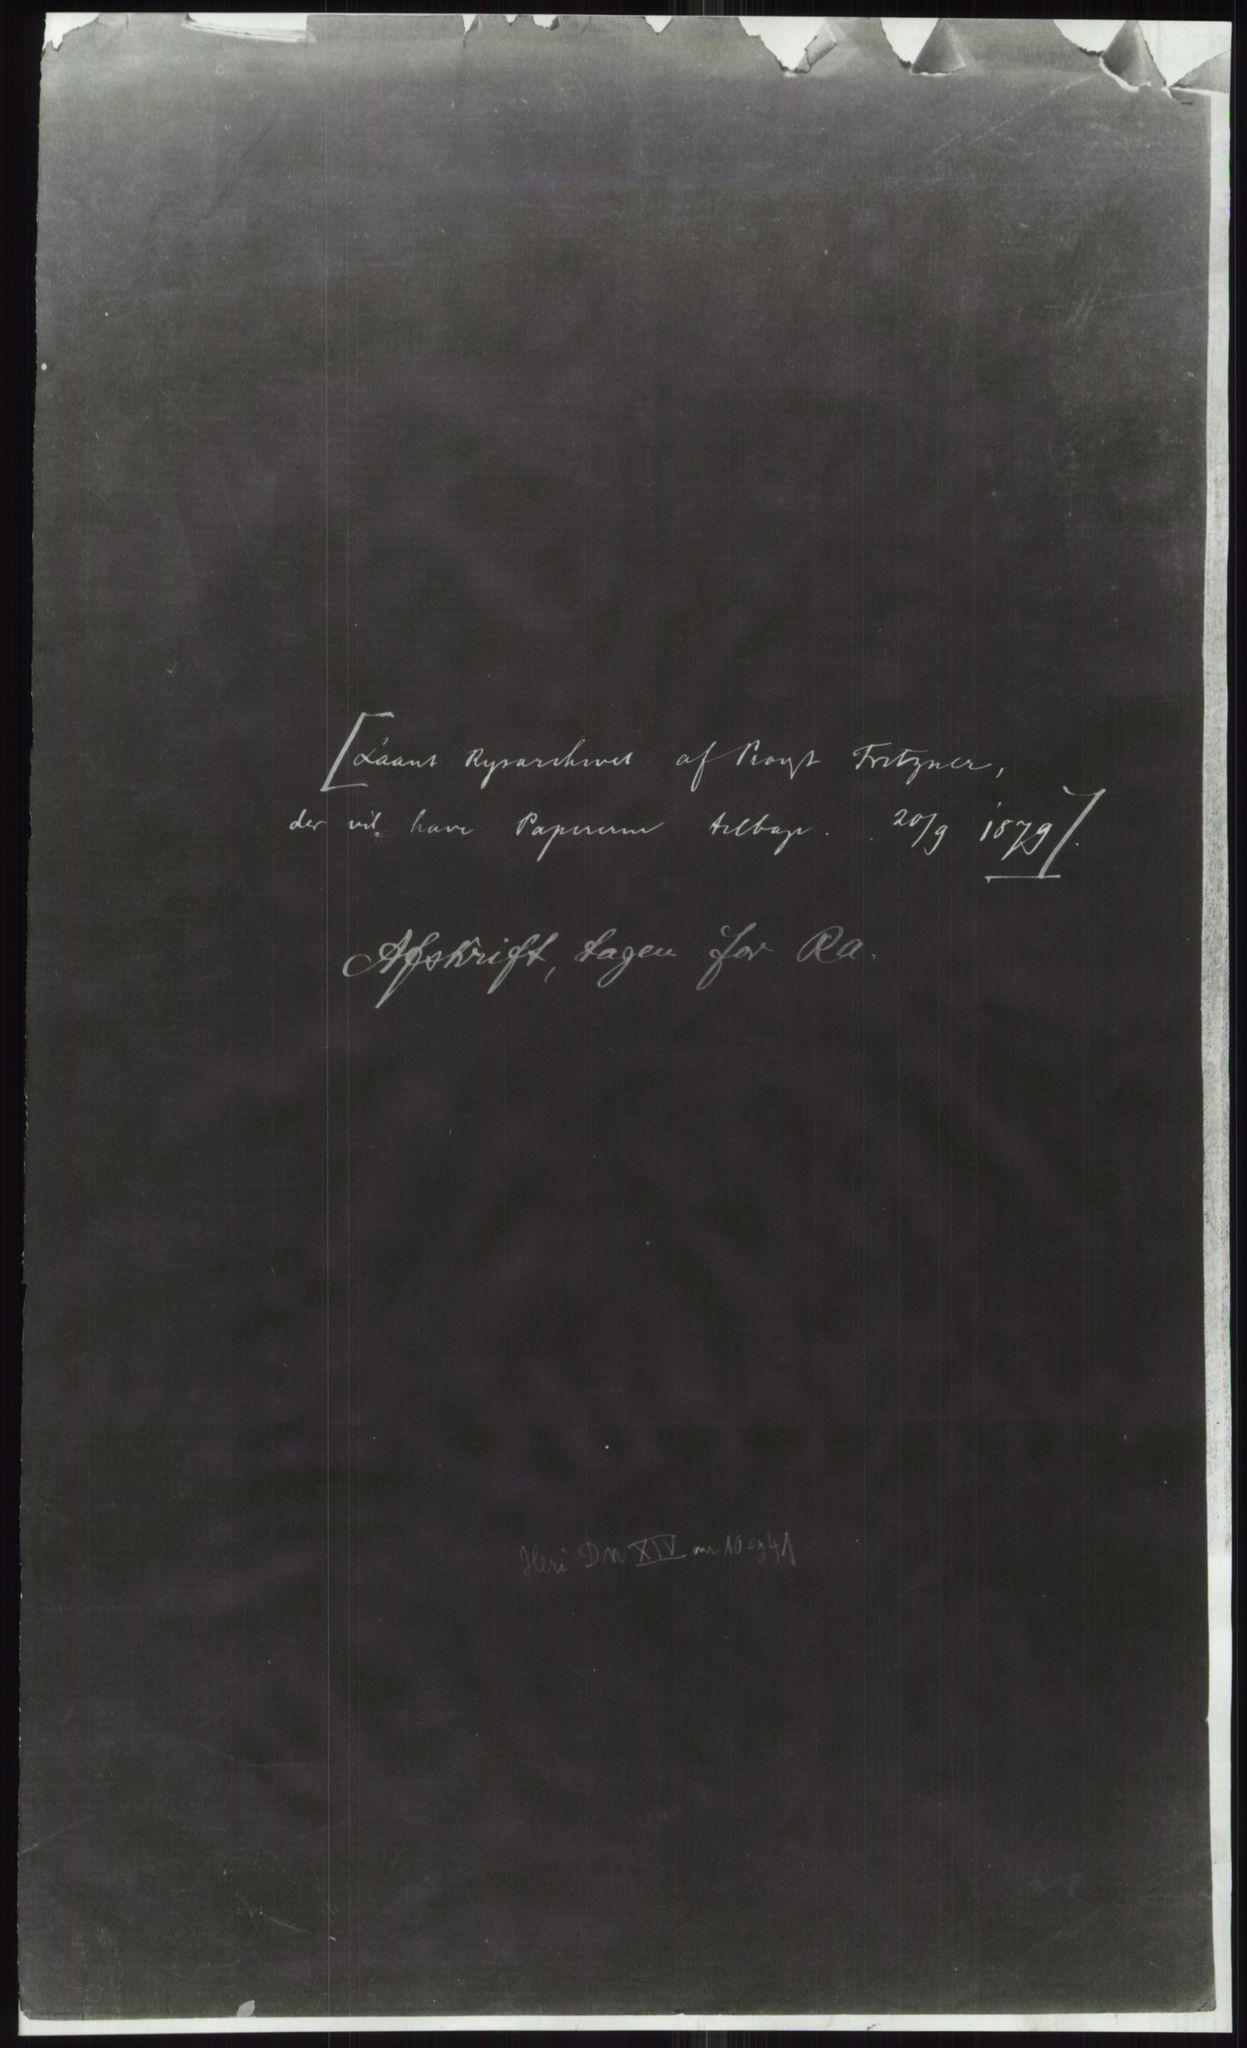 [Laant Rigsarchivet af Provst Fritzner,
der vil have Papirerne tilbage. 20/9 1879].
Afskrift, tagen for Ra.
Heri DN XIV nr 10 og 41